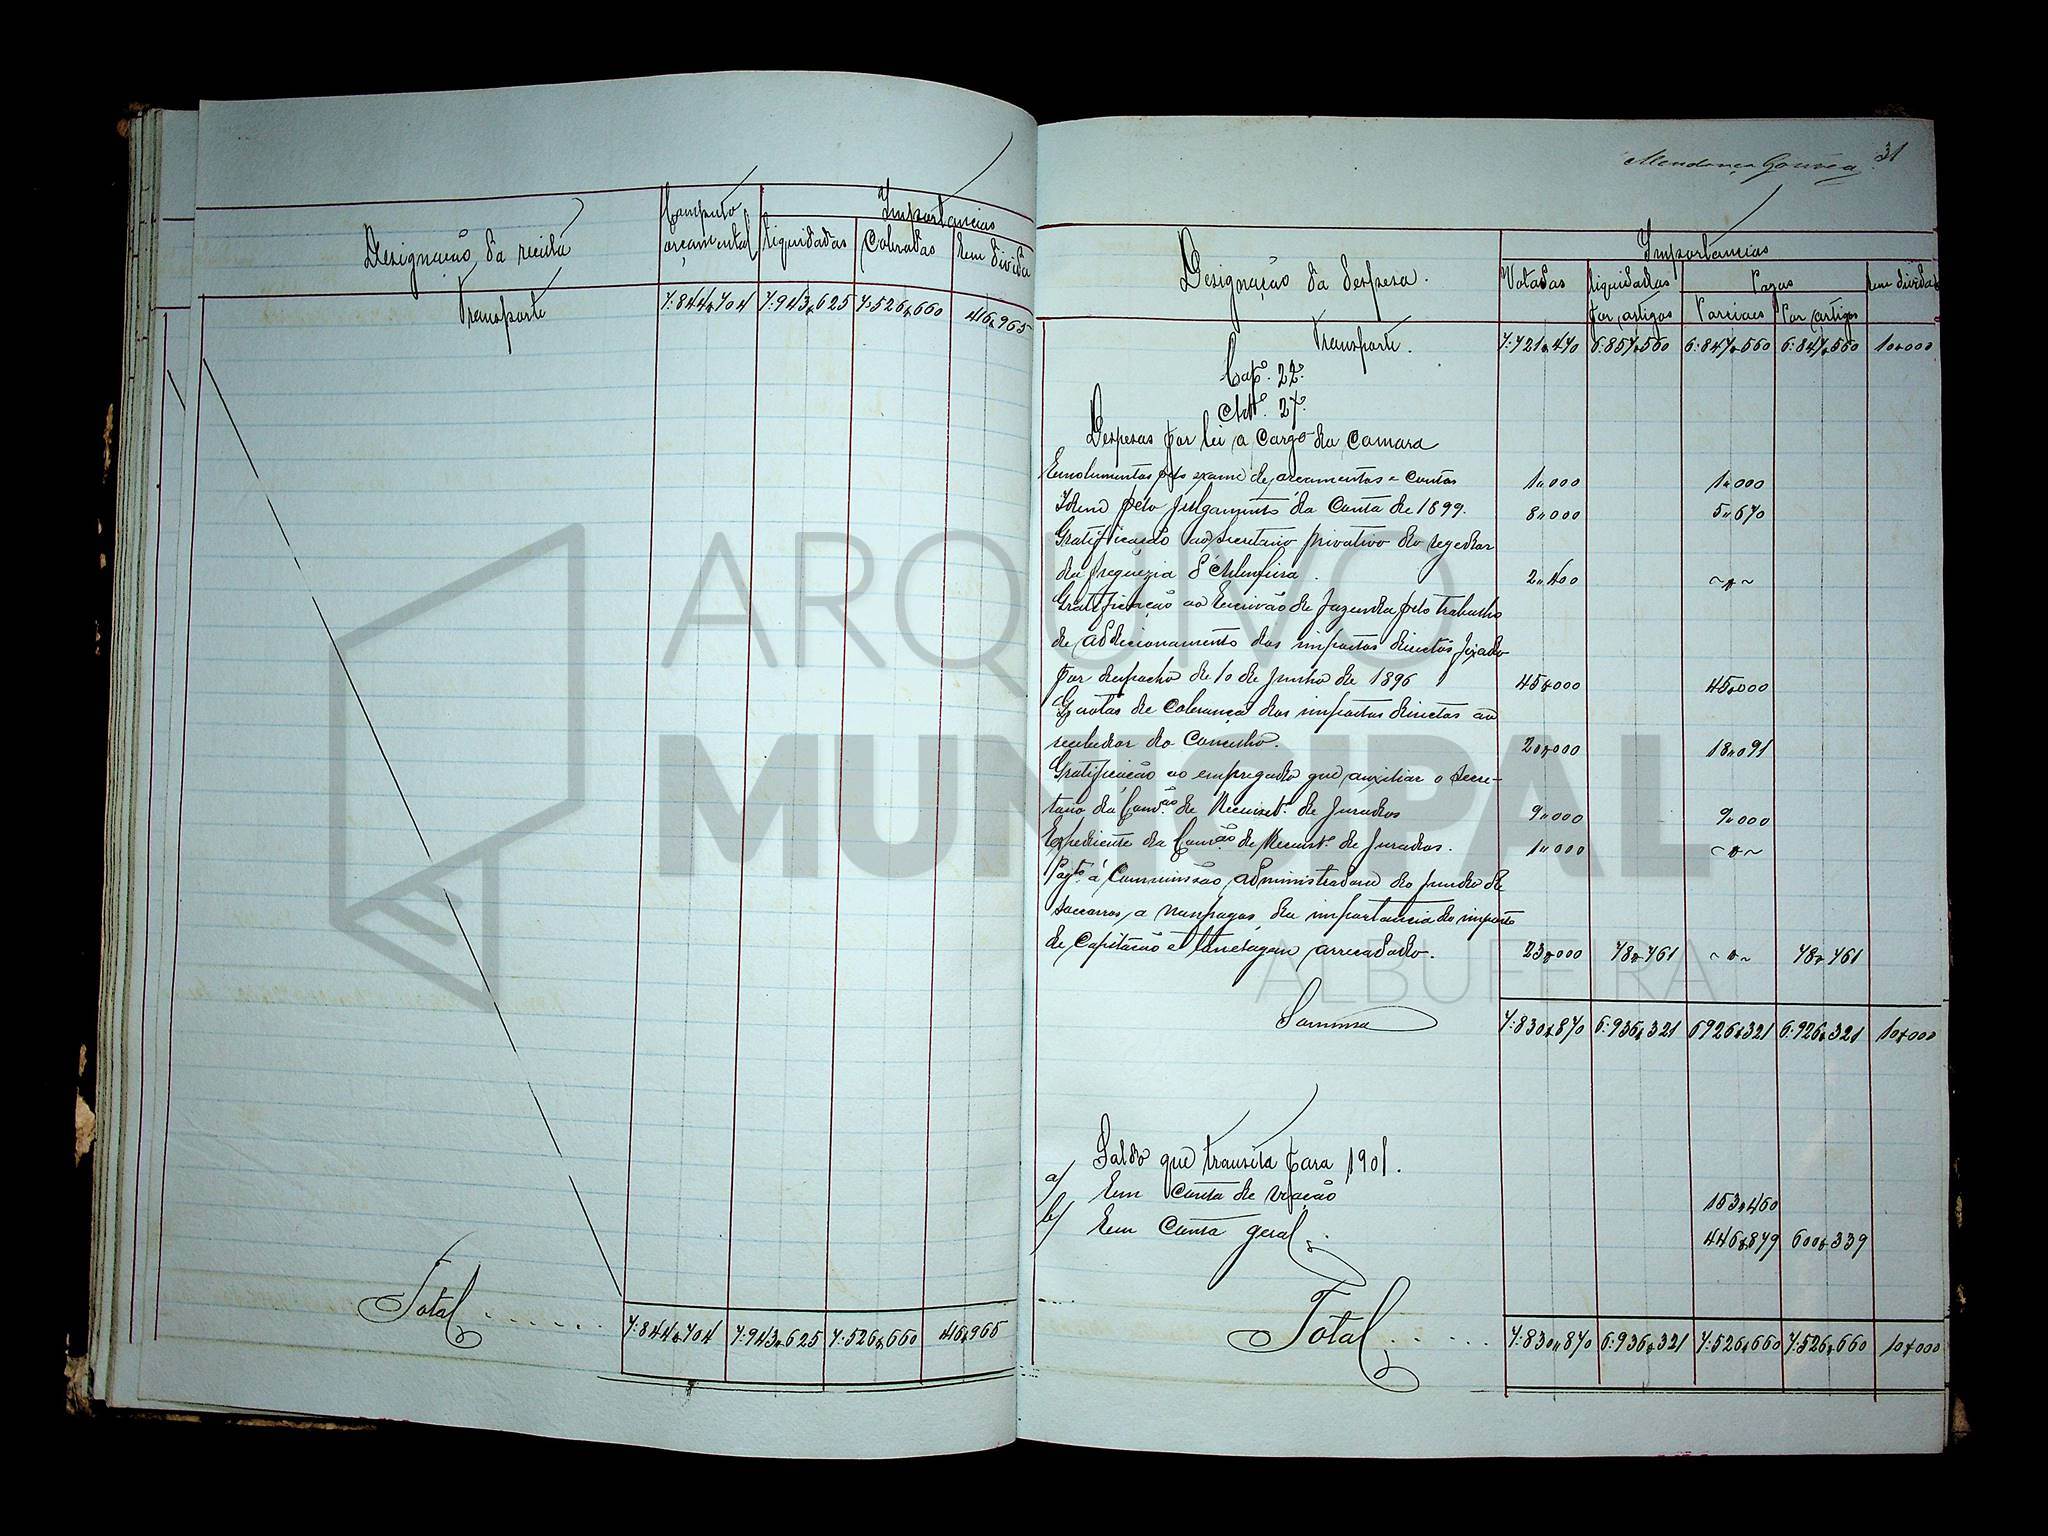 Designação da receita
Computo
orçamental
Importancias
Liquidadas
Cobradas
Em divida
Transporte
7:844$704 7:943$625 7:526$660 416$965
Total
7:844$704 7:943$625 7:526$660 416$965
Mendonça Gouvea
31
Designação da despesa.
Importancias
Votadas
Liquidadas
por artigos
Pagas
Parciaes
Por artigos
Em divida
Transporte. 7:721$470 6:857$560 6:847$560 6:847$560 10$000
Cap.º 22.º
Artº. 27.º
Despesas por lei a cargo da camara
Emolumentos pelo exame de orçamentos e contas 1$000 1$000
Idem pelo julgamento da conta de 1899. 8$000 5$670
Gratificação ao secretario privativo do regedor
da freguezia d'Albufeira. 2$400 ~$~
Gratificação ao Escrivão de fazenda pelo trabalho
de addicionamento dos impostos directos fixado
por despacho de 10 de Junho de 1896 45$000 45$000
Quotas de cobrança dos impostos directos ao
recebedor do concelho. 20$000 18$091
Gratificação ao empregado que auxiliar o secre-
tario da Comão. de Recenst.º de Jurados 9$000 9$000
Expediente da Comão de Recenst.º de Jurados. 1$000 ~$~
Pagto. á Commissão administradora do fundo de
soccorros a naufragos da importancia do imposto
de capitação e tonelagem arrecadado. 23$000 78$761 ~$~ 78$761
Somma 7:830$870 6:936$321 6926$321 6:926$321 10$000
Saldo que transita para 1901.
a) Em conta de viação 153$460
b) Em conta geral. 446$879 600$339
Total 7:830$870 6:936$321 7:526$660 7:526$660 10$000
ARQUIVO
MUNICIPAL
ALBUFEIRA